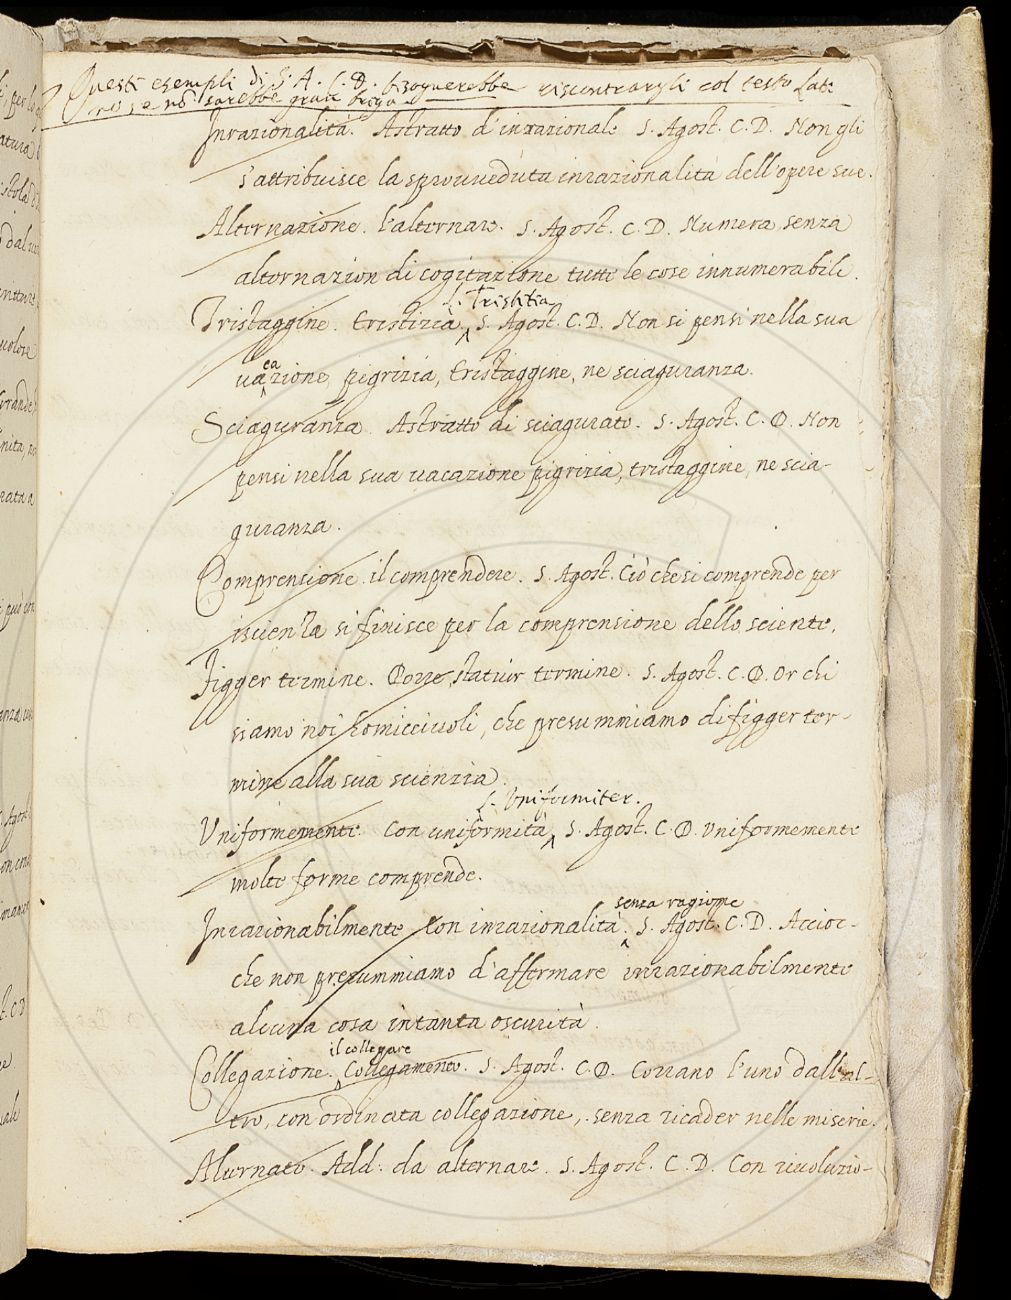 Questi esempli di S. A. C. D. bisognerebbe riscontrargli col testo Lat:
se nò sarebbe gran briga
Inrazionalità. Astratto d'inrazionale S. Agost. C. D. Non gli
s'attribuisce la sprouveduta inrazionalità dell'opere sue.
Alternazione. l'alternare. S. Agost. C. D. Numera senza
alternazion di cogitazione tutte le cose innumerabili.
L. Tristitia
Tristaggine. tristizia S. Agost. C. D. Non si pensi nella sua
ca
uazione pigrizia, tristaggine, ne sciaguranza.
Sciaguranza. Astratto di sciagurato. S. Agost. C. D. Non
pensi nella sua uacazione pigrizia, tristaggine, ne scia-
guranza.
Comprensione. il comprendere. S. Agost. Ciò che si comprende per
iscienza si finisce per la comprensione dello sciente.
Figger termine. Porre, statuir termine. S. Agost. C. D. Or chi
siamo noi homicciuoli, che presummiamo di figger ter-
mine alla sua scienzia.
L. Uniformiter.
Uniformemente. Con uniformità S. Agost. C. D. Uniformemente
molte forme comprende.
senza ragione
Inrazionabilmente Con inrazionalità. S. Agost. C. D. Accioc-
che non presummiamo d'affermare inrazionabilmente
alcuna cosa intanta oscurità.
il collegare
Collegazione. Collegamento. S. Agost. C. D. Corrano l'uno dall'al-
tro, con ordinata collegazione, senza ricader nelle miserie.
Alternato. Add. da alternare. S. Agost. C. D. Con riuoluzio-